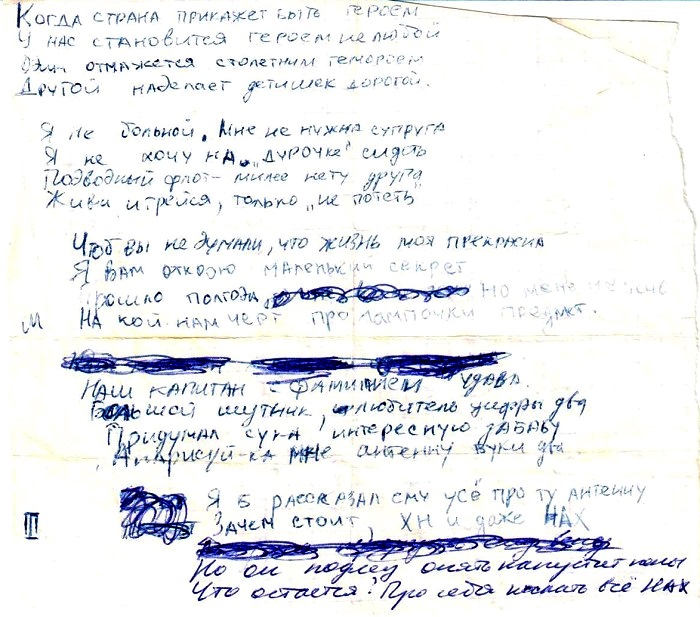 Когда страна прикажет быть героем
У нас становится героем не любой
Один отмажется столетним геморроем
Другой наделает детишек дорогой.
Я не больной. Мне не нужна супруга
Я не хочу на „дурочке" сидеть
Подводный флот - милее нету друга
Живи и грейся, только „не потеть"
Чтоб вы не думали, что жизнь моя прекрасна
Я вам открою маленький секрет
Прошло полгода, но мене не
М На кой нам черт про лампочки предмет.
Наш капитан с фамилием Удава
Большой шутник, любитель цифры два
Придумал сука интересную забаву
А нарисуй-ка мне антенну Вуки два
Я б рассказал ему усё про ту антенну
III Зачем стоит, ХН и даже НАХ
Но он подлец опять напустит
Что остается? Про себя послать всё НАХ